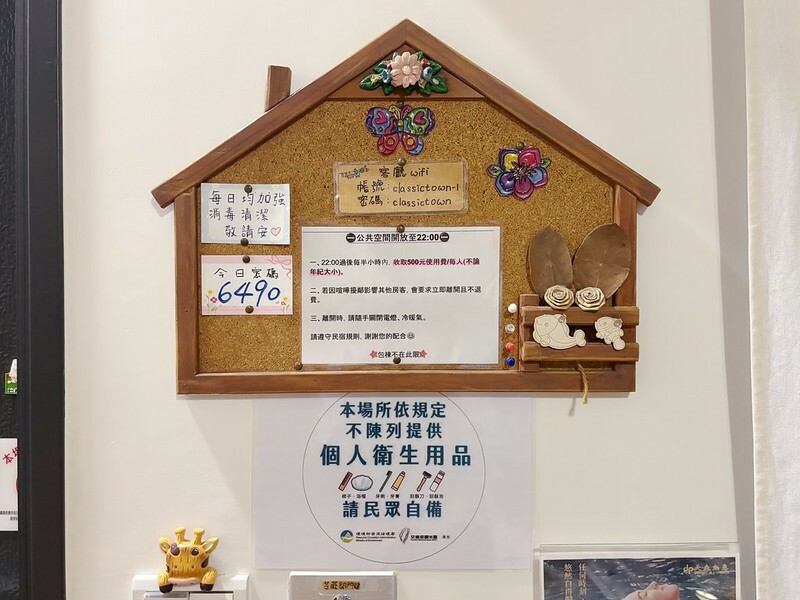 客廳 wifi
帳號：classictown-1
密碼：classictown
每日均加強
消毒清潔
敬請安♡
今日密碼
6490
公共空間開放至22:00
一、22:00過後每半小時內, 收取500元使用費/每人(不論
年紀大小)。
二、若因喧嘩擾鄰影響其他房客, 會要求立即離開且不退
費。
三、離開時, 請隨手關閉電燈、冷暖氣。
請遵守民宿規則, 謝謝您的配合☺
包棟不在此限
本場所依規定
不陳列提供
個人衛生用品
梳子、浴帽 牙刷、牙膏 刮鬍刀、刮鬍泡
請民眾自備
環境部資源循環署
任何時刻
悠然自得